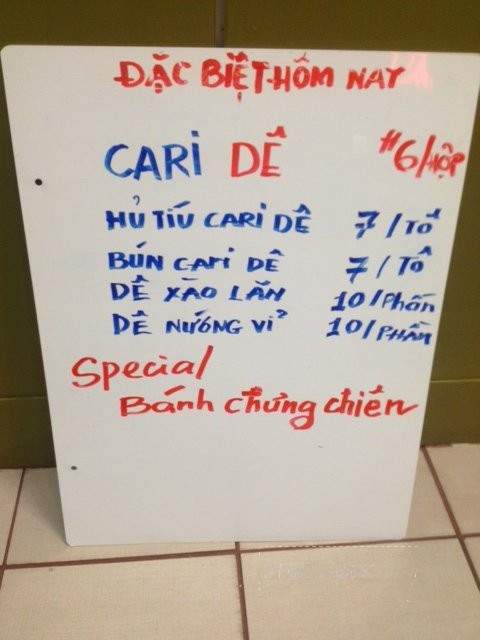 ĐẶC BIỆT HÔM NAY
CARI DÊ $6/HỘP
HỦ TIẾU CARI DÊ 7/TÔ
BÚN CARI DÊ 7/TÔ
DÊ XÀO LĂN 10/PHẦN
DÊ NƯỚNG VỈ 10/PHẦN
Special
Bánh chưng chiên